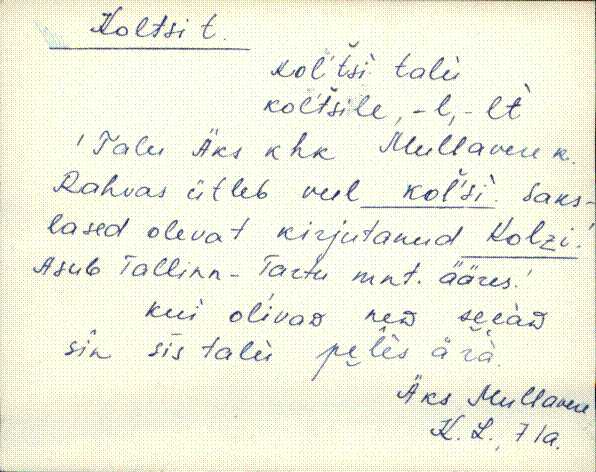 Koltsi t.
kol'tši talu
kol'tšile, -l, -lt
'Talu Äks khk Mullavere k.
Rahvas ütleb veel kol'si. Saks-
lased olevat kirjutanud Kolzi.'
Asub Tallinn-Tartu mnt. ääres.'
kui olivaD neD seeàD
sin sis talu peles ärà.
Äks Mullavere
K. L., 71a.